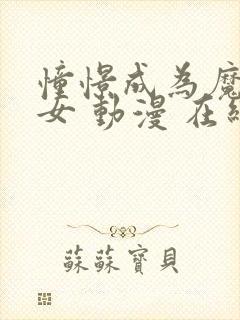 憧憬成為魔
女動漫在線
蘇蘇寶貝